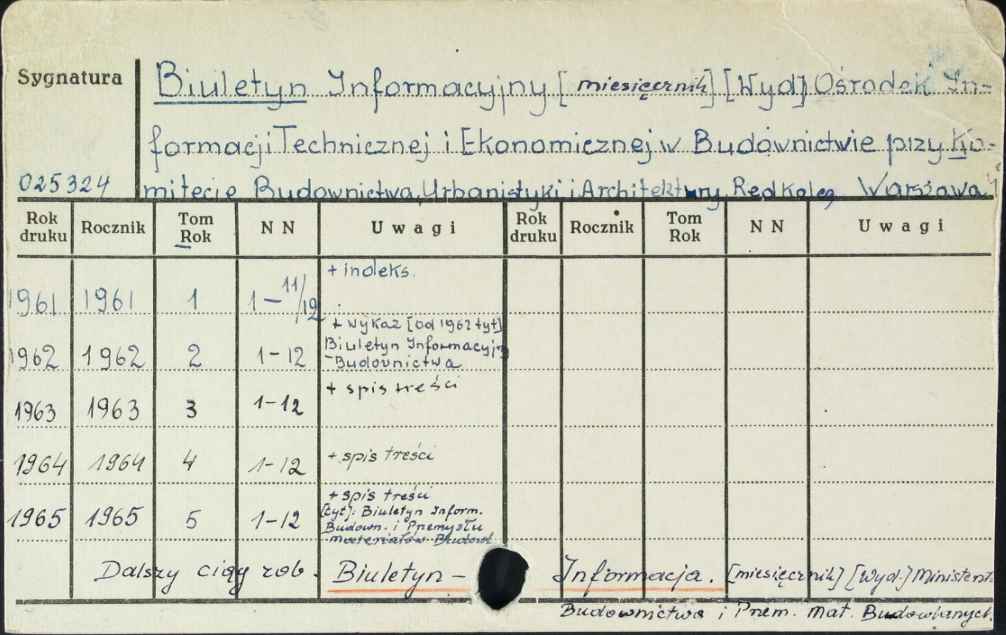 Sygnatura
Biuletyn Informacyjny [miesięcznik] [Wyd] Ośrodek In-
formacji Technicznej i Ekonomicznej w Budownictwie przy Ko-
025324 mitecie Budownictwa, Urbanistyki i Architektury, Red Koleg. Warszawa
Rok druku Rocznik Tom Rok NN Uwagi Rok druku Rocznik Tom Rok NN Uwagi
1961 1961 1 1-11/12 + indeks.
1962 1962 2 1-12 + wykaz [od 1962 tyt] Biuletyn Informacyjny Budownictwa
1963 1963 3 1-12 + spis treści
1964 1964 4 1-12 + spis treści
1965 1965 5 1-12 + spis treści [tyt]: Biuletyn Inform. Budown. i Przemysłu materiałów Budowl
Dalszy ciąg zob. Biuletyn - Informacja. [miesięcznik] [Wyd.] Ministerst.
Budownictwa i Przem. Mat. Budowlanych.